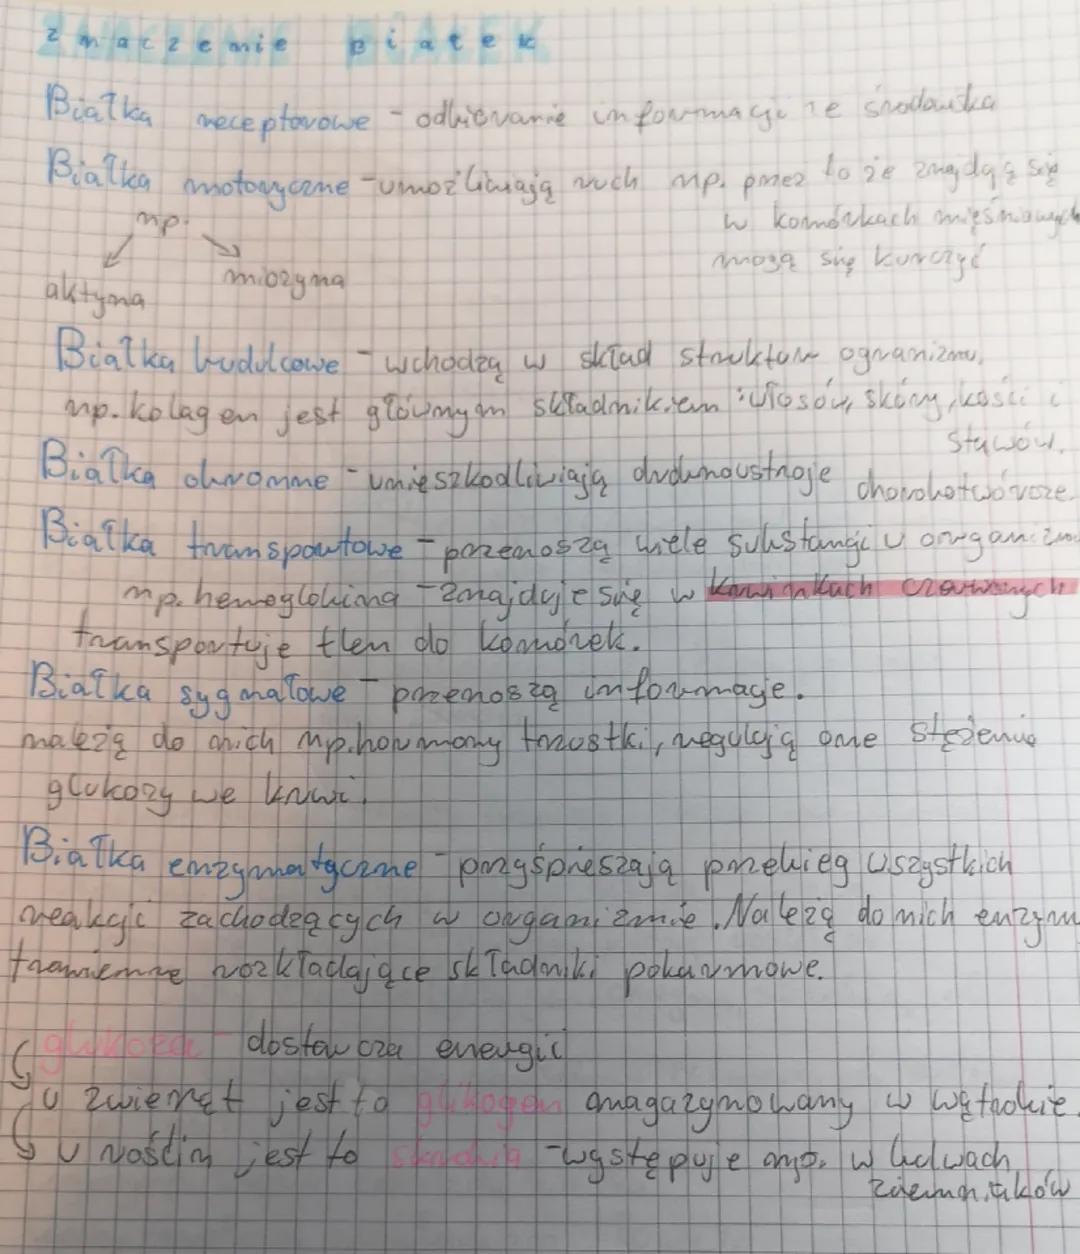 znaczenie Białek
Białka receptorowe - odbieranie informacji ze środowiska
Białka motoryczne - umożliwiają ruch np. przez to że znajdą się
w komórkach mięśniowych
mogą się kurczyć
np.
aktyna miozyna
Białka budulcowe - wchodzą w skład struktur organizmu,
np. kolagen jest głównym składnikiem: włosów, skóry, kości i
stawów.
Białka ochronne - unieszkodliwiają drobnoustroje chorobotwórcze.
Białka transportowe - przenoszą wiele substancji w organizmie
np. hemoglobina - znajduje się w krwinkach czerwonych
transportuje tlen do komórek.
Białka sygnałowe - przenoszą informacje.
należą do nich np. hormony trzustki, regulują one stężenie
glukozy we krwi.
Białka enzymatyczne - przyśpieszają przebieg wszystkich
reakcji zachodzących w organizmie. Należą do nich enzymy
trawienne rozkładające składniki pokarmowe.
glukoza - dostawcza energii
u zwierząt jest to glikogen magazynowany w wątrobie.
u roślin jest to skrobia - występuje np. w bulwach
ziemniaków